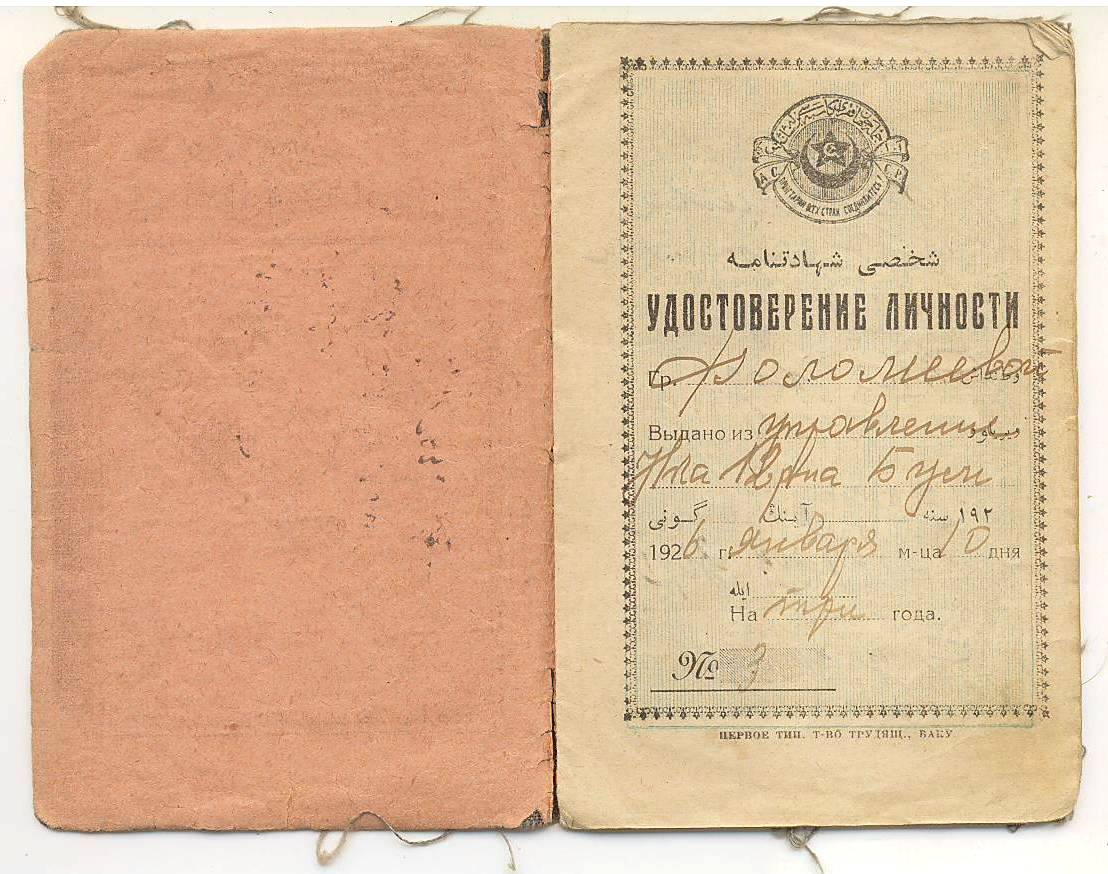 А. С. С. Р.
ПРОЛЕТАРИИ ВСЕХ СТРАН СОЕДИНЯЙТЕСЬ!
شخصی شهادتنامه
УДОСТОВЕРЕНИЕ ЛИЧНОСТИ
Гр. Фоломеевой
Выдано из управления
۱۹۲ سنه آینڭ گونی
1926 г. января м-ца 10 дня
ایله
На три года.
№ 3
ПЕРВОЕ ТИП. Т-ВО ТРУДЯЩ., БАКУ